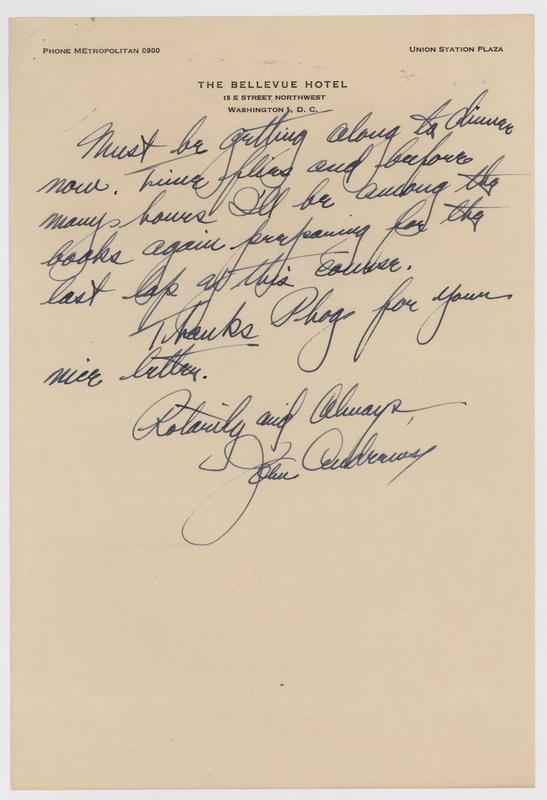 PHONE METROPOLITAN 0900
UNION STATION PLAZA
THE BELLEVUE HOTEL
15 E STREET NORTHWEST
WASHINGTON 1, D. C.
Must be getting along to dinner
now. Time flies and before
many hours I'll be among the
books again preparing for the
last lap of this course.
Thanks Phog for your
nice letter.
Rotarily and Always,
John Andrews